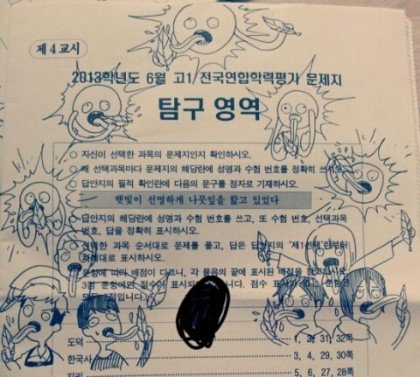 제 4 교시
2013학년도 6월 고1 전국연합학력평가 문제지
탐구 영역
○ 자신이 선택한 과목의 문제지인지 확인하시오.
선택과목마다 문제지의 해당란에 성명과 수험 번호를 정확히
○ 답안지의 필적 확인란에 다음의 문구를 정자로 기재하시오.
햇빛이 선명하게 나뭇잎을 핥고 있었다
○ 답안지의 해당란에 성명과 수험 번호를 쓰고, 또 수험 번호, 선택과목
번호, 답을 정확히 표시하시오.
선택한 과목 순서대로 문제를 풀고, 답은 답안지의 '제1선택'
차례대로 표시하시오.
문항에 따라 배점이 다르니, 각 물음의 끝에 표시된 배점을
3점 문항에만 점수가 표시되 점수 표시가
도덕 1, 2, 31, 32쪽
한국사 3, 4, 29, 30쪽
지리 5, 6, 27, 28쪽